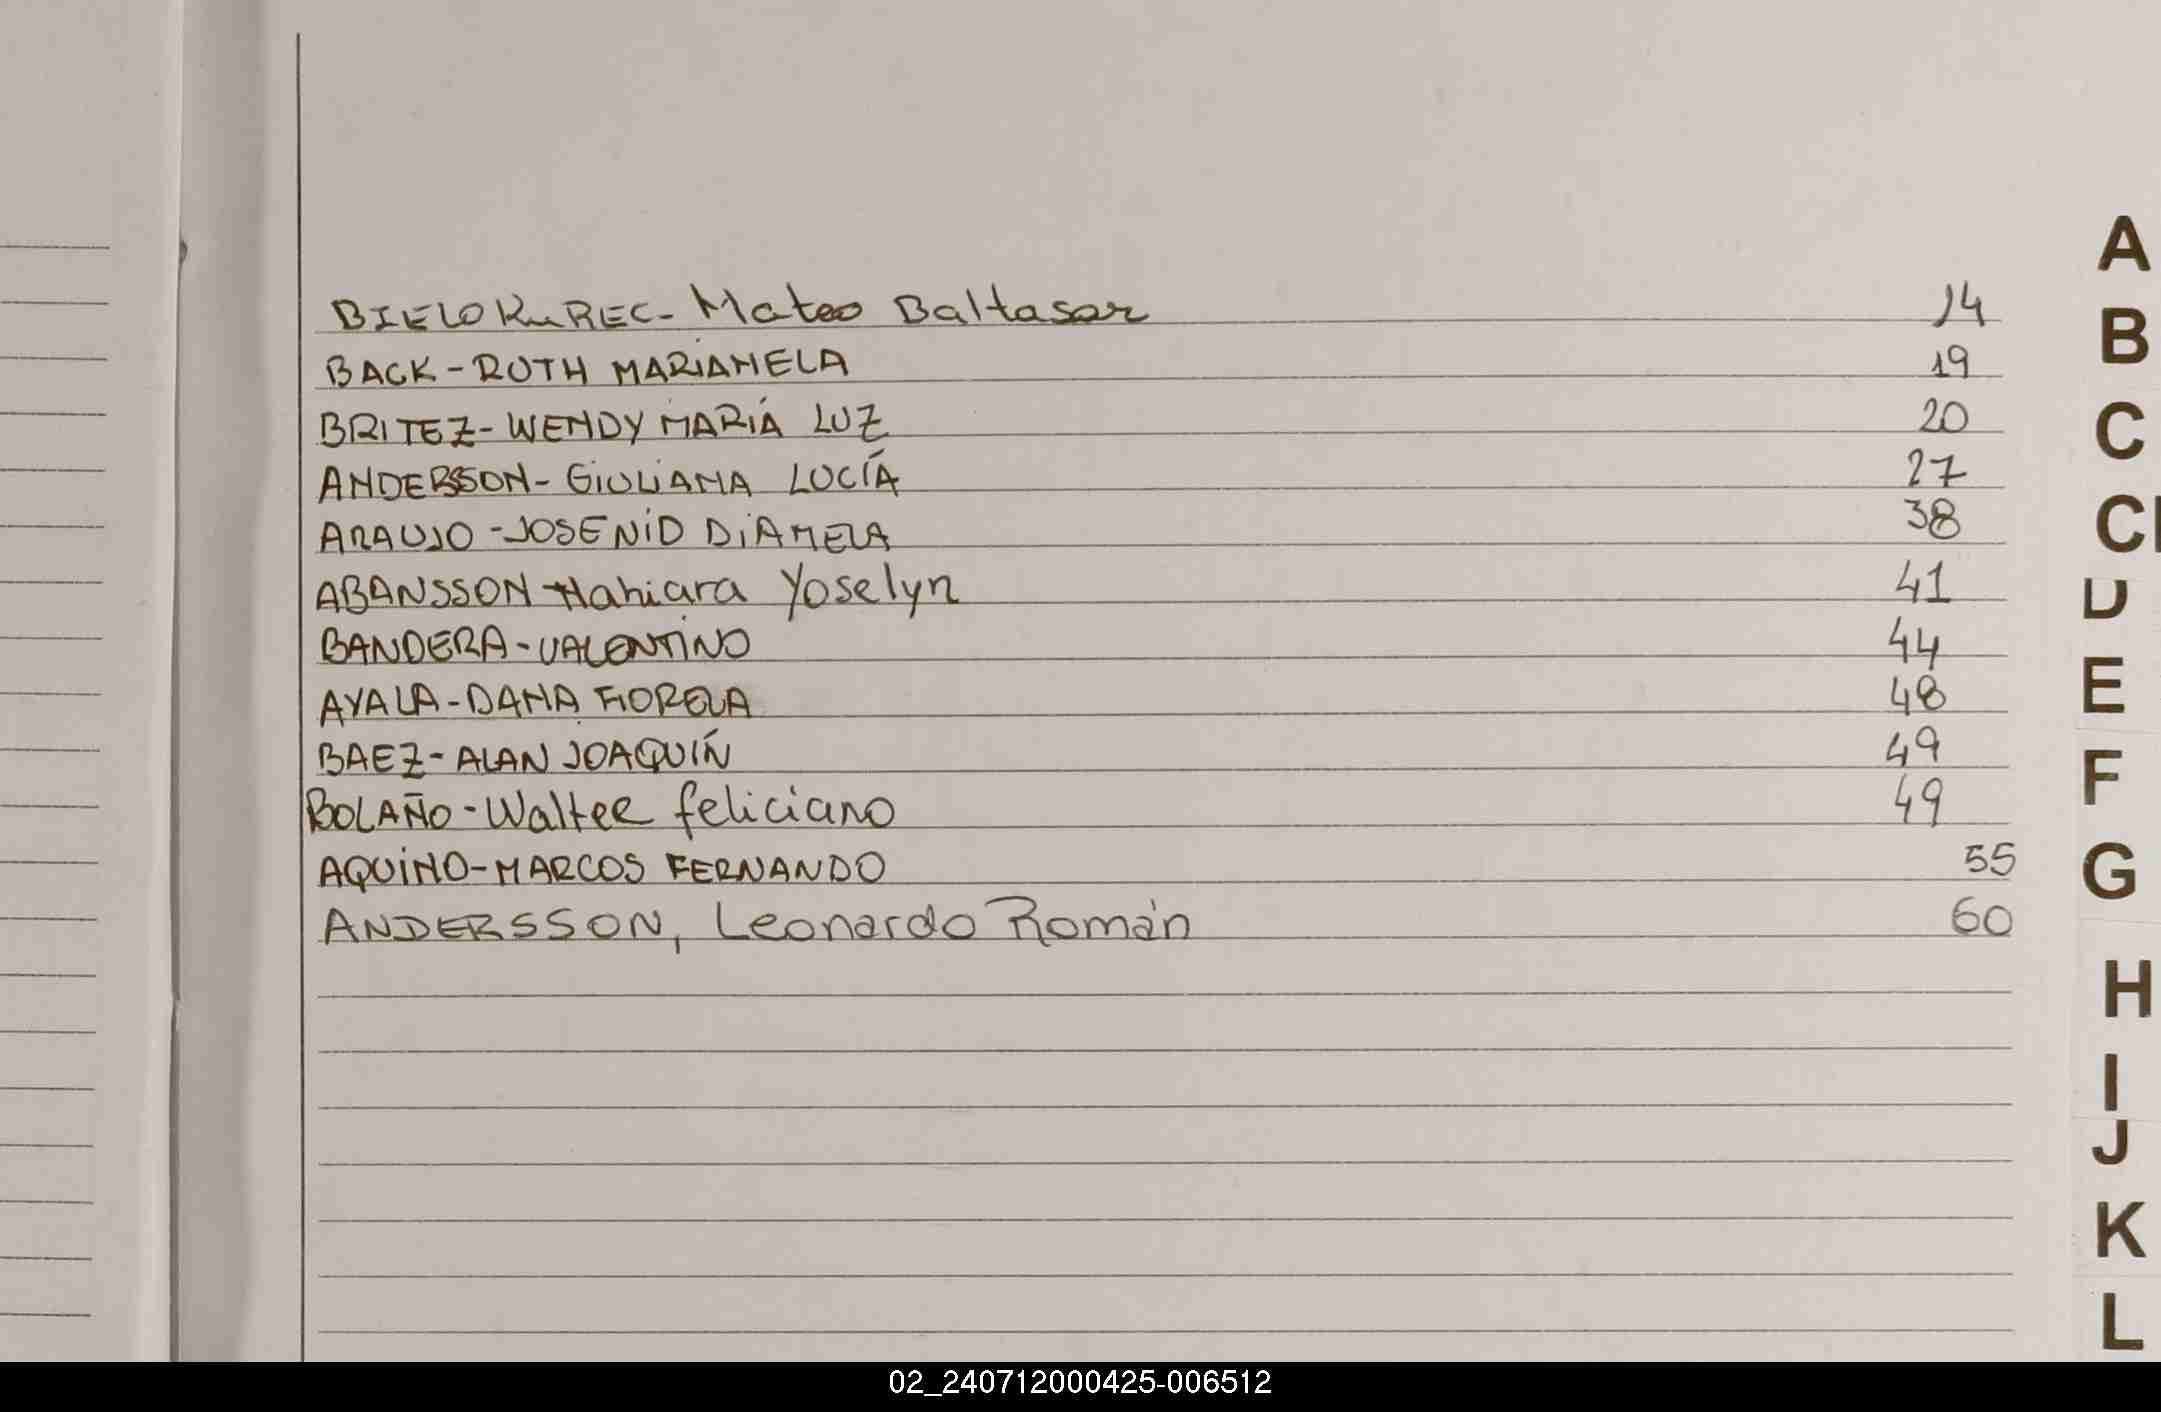 BIELOKUREC- Mateo Baltasar 14
BACK-RUTH MARIANELA 19
BRITEZ-WENDY MARIA LUZ 20
ANDERSSON- GIULIANA LUCÍA 27
ARAUJO-JOSENID DIAMELA 38
ABANSSON-Nahiara Yoselyn 41
BANDERA-VALENTINO 44
AYALA-DANA FIORELA 48
BAEZ-ALAN JOAQUÍN 49
BOLAÑO-Walter feliciano 49
AQUINO-MARCOS FERNANDO 55
ANDERSSON, Leonardo Román 60
A
B
C
D
E
F
G
H
I
J
K
L
02_240712000425-006512